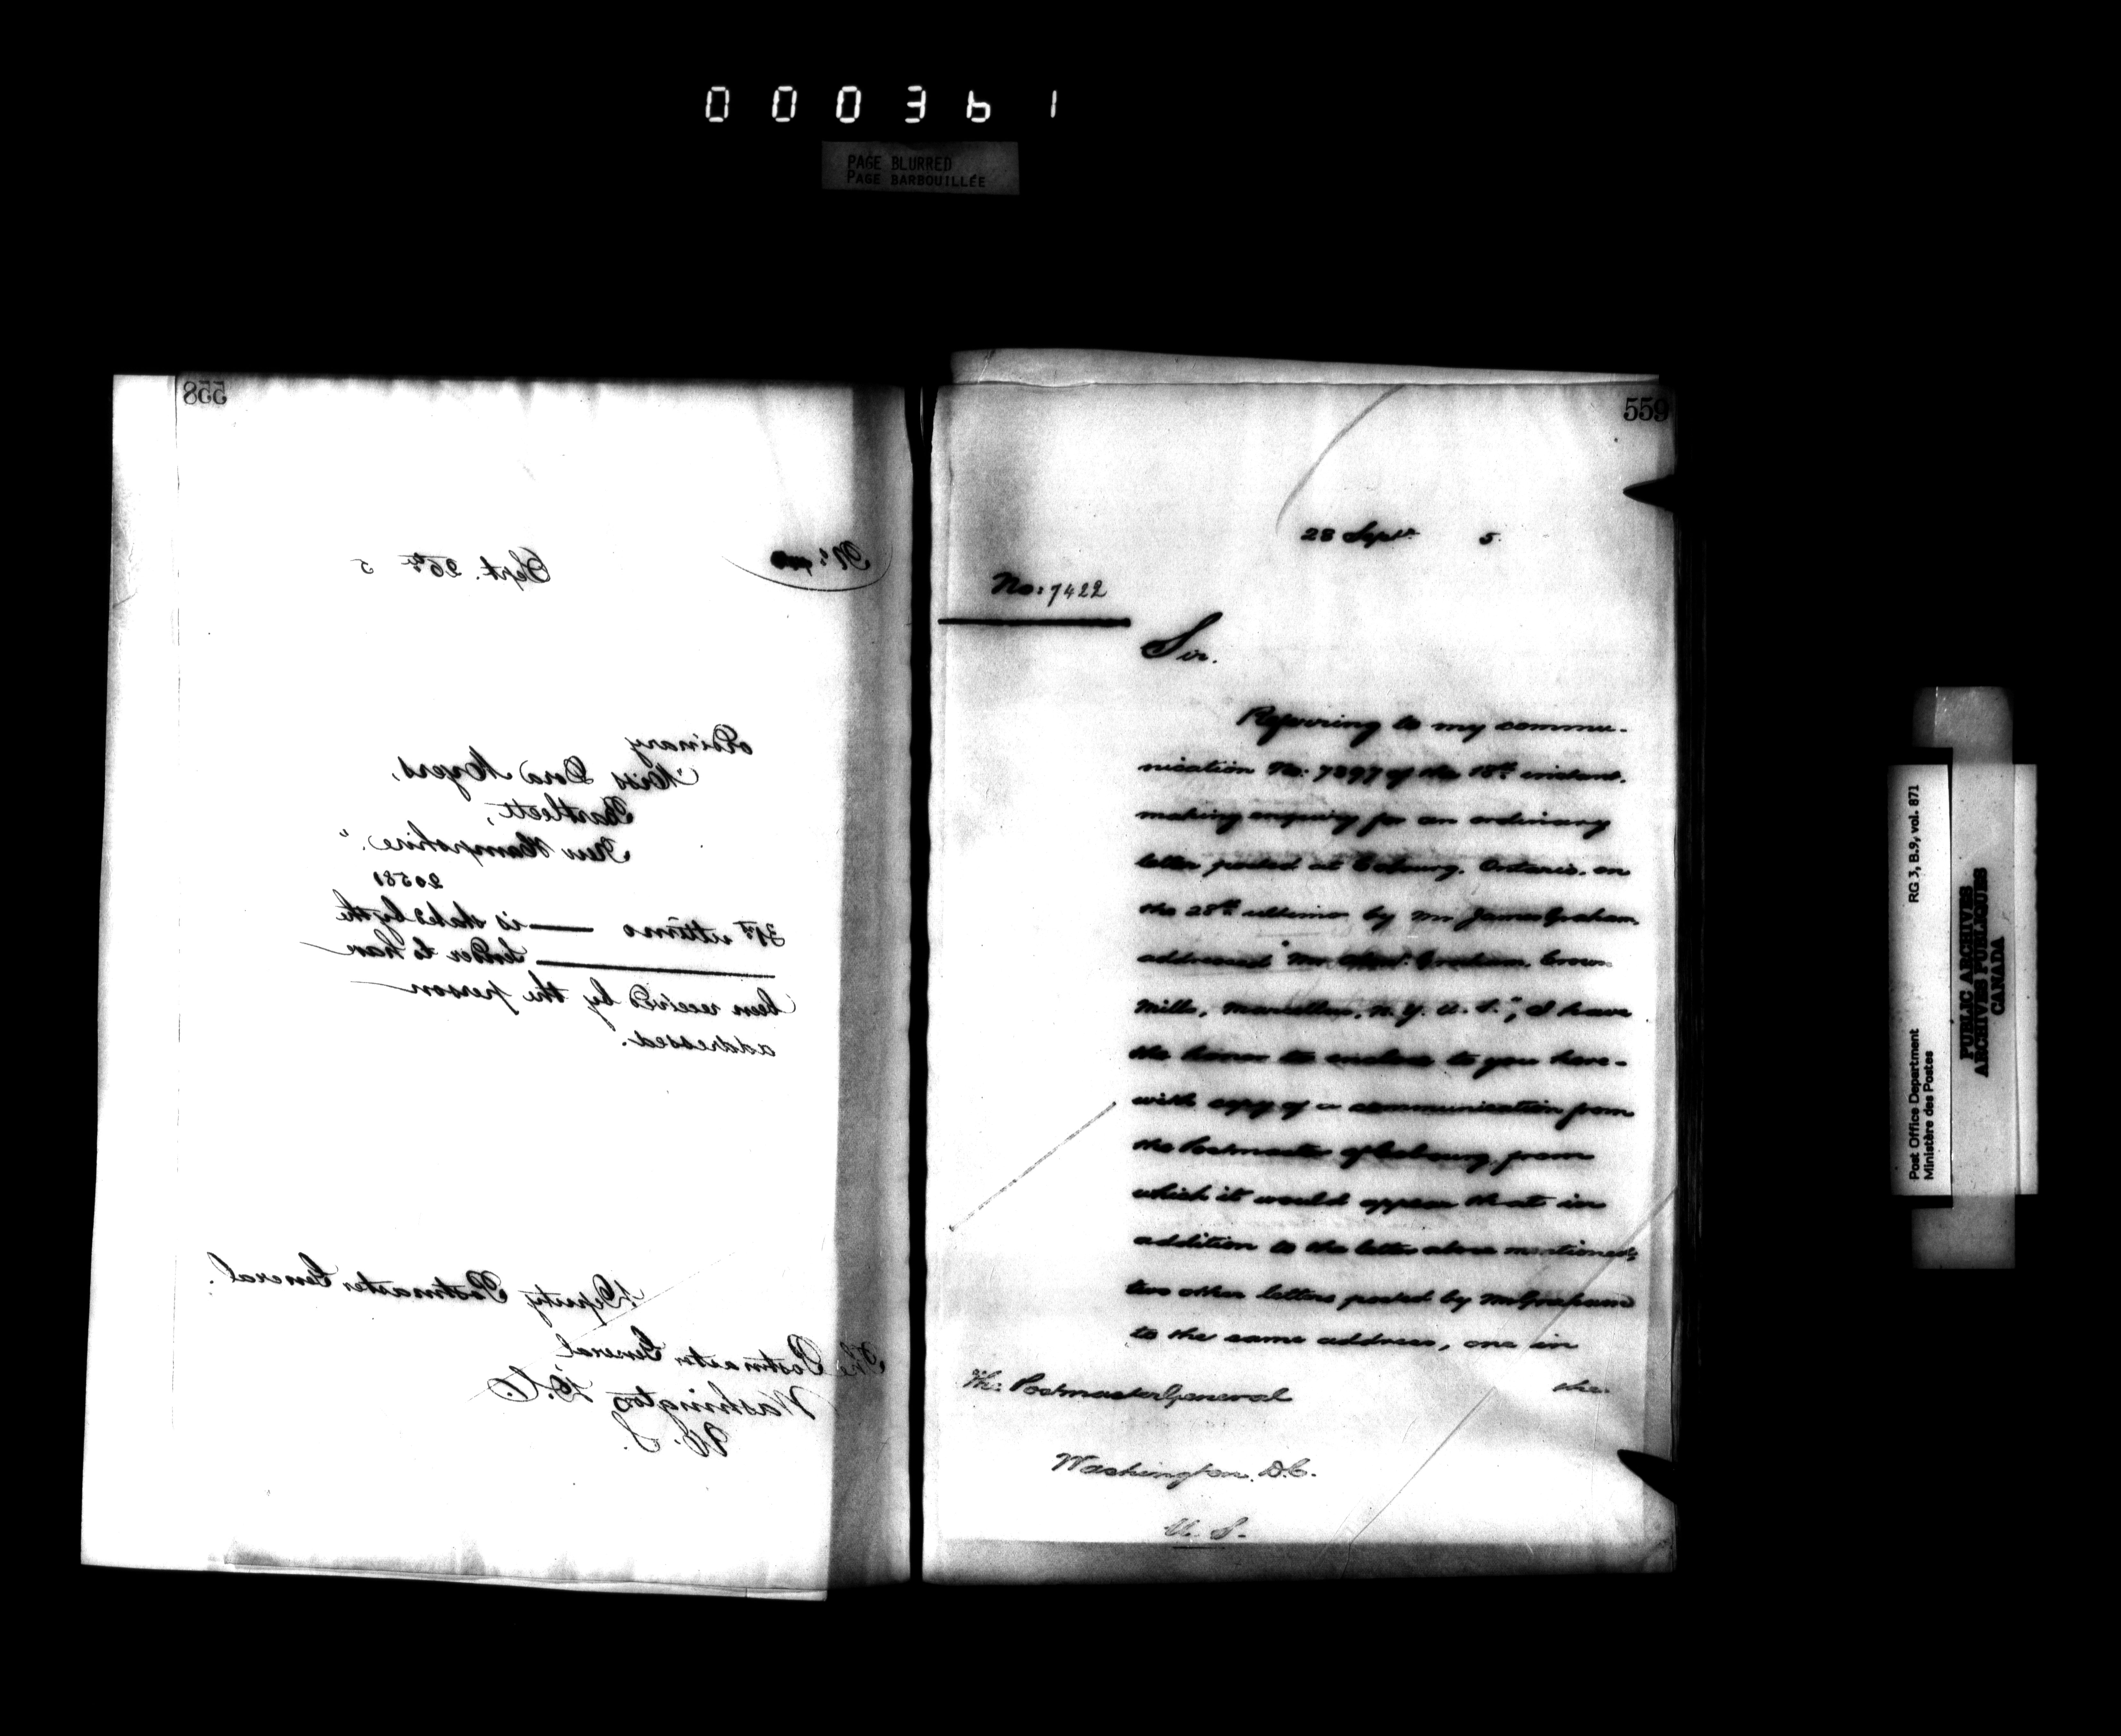 000361
PAGE BLURRED
PAGE BARBOUILLÉE
558
No:
Sept. 26th 5
Ordinary
Miss Dora Myers,
Bartlett,
New Hampshire."
20581
31st ultimo — is stated by the
sender to have
been received by the person
addressed.
Deputy Postmaster General.
The Postmaster General
Washington D.C.
U. S.
559
28 Septr 5.
No: 7422
Sir.
Referring to my commu-
nication No: 7397 of the 18th instant.
making enquiry for an ordinary
letter posted at Cobourg, Ontario, on
the 28th ultimo by Mr James Graham
addressed "Mr Graham, Crown
Mills, Marcellus, N. Y. U. S.", I have
the honor to enclose to you here-
with copy of a communication from
the Postmaster of Cobourg, from
which it would appear that in
addition to the letter above mentioned,
two other letters posted by Mr Graham
to the same address, one in
the
The Postmaster General
Washington. D.C.
U. S.
Post Office Department RG 3, B.9, vol. 871
Ministère des Postes
PUBLIC ARCHIVES
ARCHIVES PUBLIQUES
CANADA